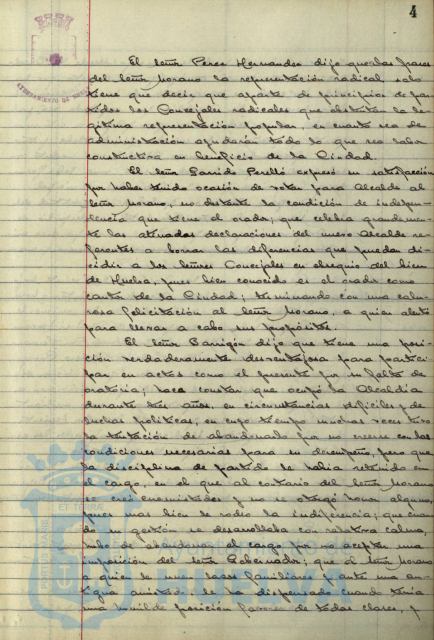 4
AYUNTAMIENTO DE
El señor Perez Hernandez dijo que las frases
del señor Morano la representación radical solo
tiene que decir que aparte de principios de par-
tidos los Concejales radicales que ostentan la le-
gitima representación popular, en cuanto sea de
administración ayudarán todo lo que sea labor
constructiva en beneficio de la Ciudad.
El señor Garrido Perelló expresó su satisfacción
por haber tenido ocasión de votar para Alcalde al
señor Morano, no obstante la condición de indepen-
dencia que tiene el orador; que celebra grandemen-
te las atinadas declaraciones del nuevo Alcalde re-
ferentes a borrar las diferencias que puedan di-
vidir a los señores Concejales en obsequio del bien
de Huelva, pues bien conocido es el orador como
cantor de la Ciudad; terminando con una calu-
rosa felicitación al señor Morano, a quien alentó
para llevar a cabo sus propósitos.
El señor Barrigón dijo que tiene una posi-
ción verdaderamente desventajosa para partici-
par en actos como el presente por su falta de
oratoria; hace constar que ocupó la Alcaldía
durante tres años, en circunstancias dificiles y de
luchas politicas, en cuyo tiempo muchas veces tuvo
la tentación de abandonarlo por no creerse con las
condiciones necesarias para su desempeño, pero que
la disciplina de partido le habia retenido en
el cargo, en el que al contario del señor Morano
se creó enemistades y no se otorgó honor alguno,
pues mas bien le rodeó la indiferencia; que cuan-
do su gestión se desarrollaba con relativa calma,
hubo de abandonar el cargo por no aceptar una
imposición del señor Gobernador; que el señor Morano
a quien le unen lazos familiares y ante una an-
tigua amistad, le ha dispensado cuando tenia
una humilde posición favores de todas clases, y